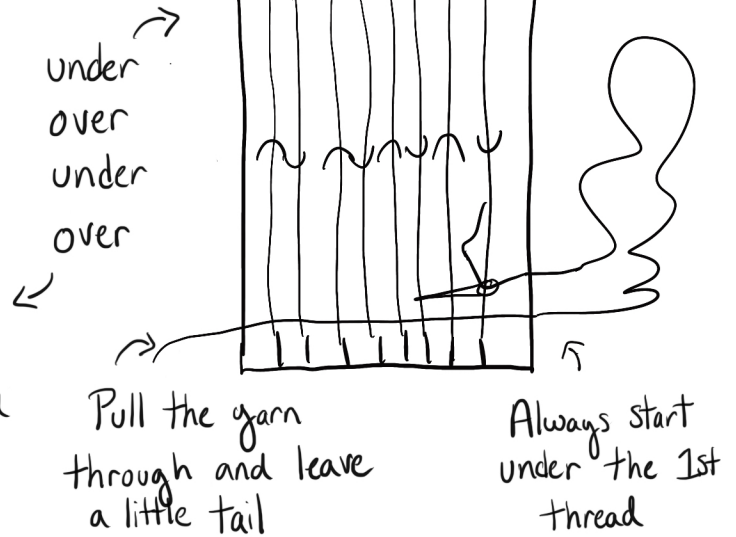 under
over
under
over
Pull the yarn
through and leave
a little tail
Always start
under the 1st
thread